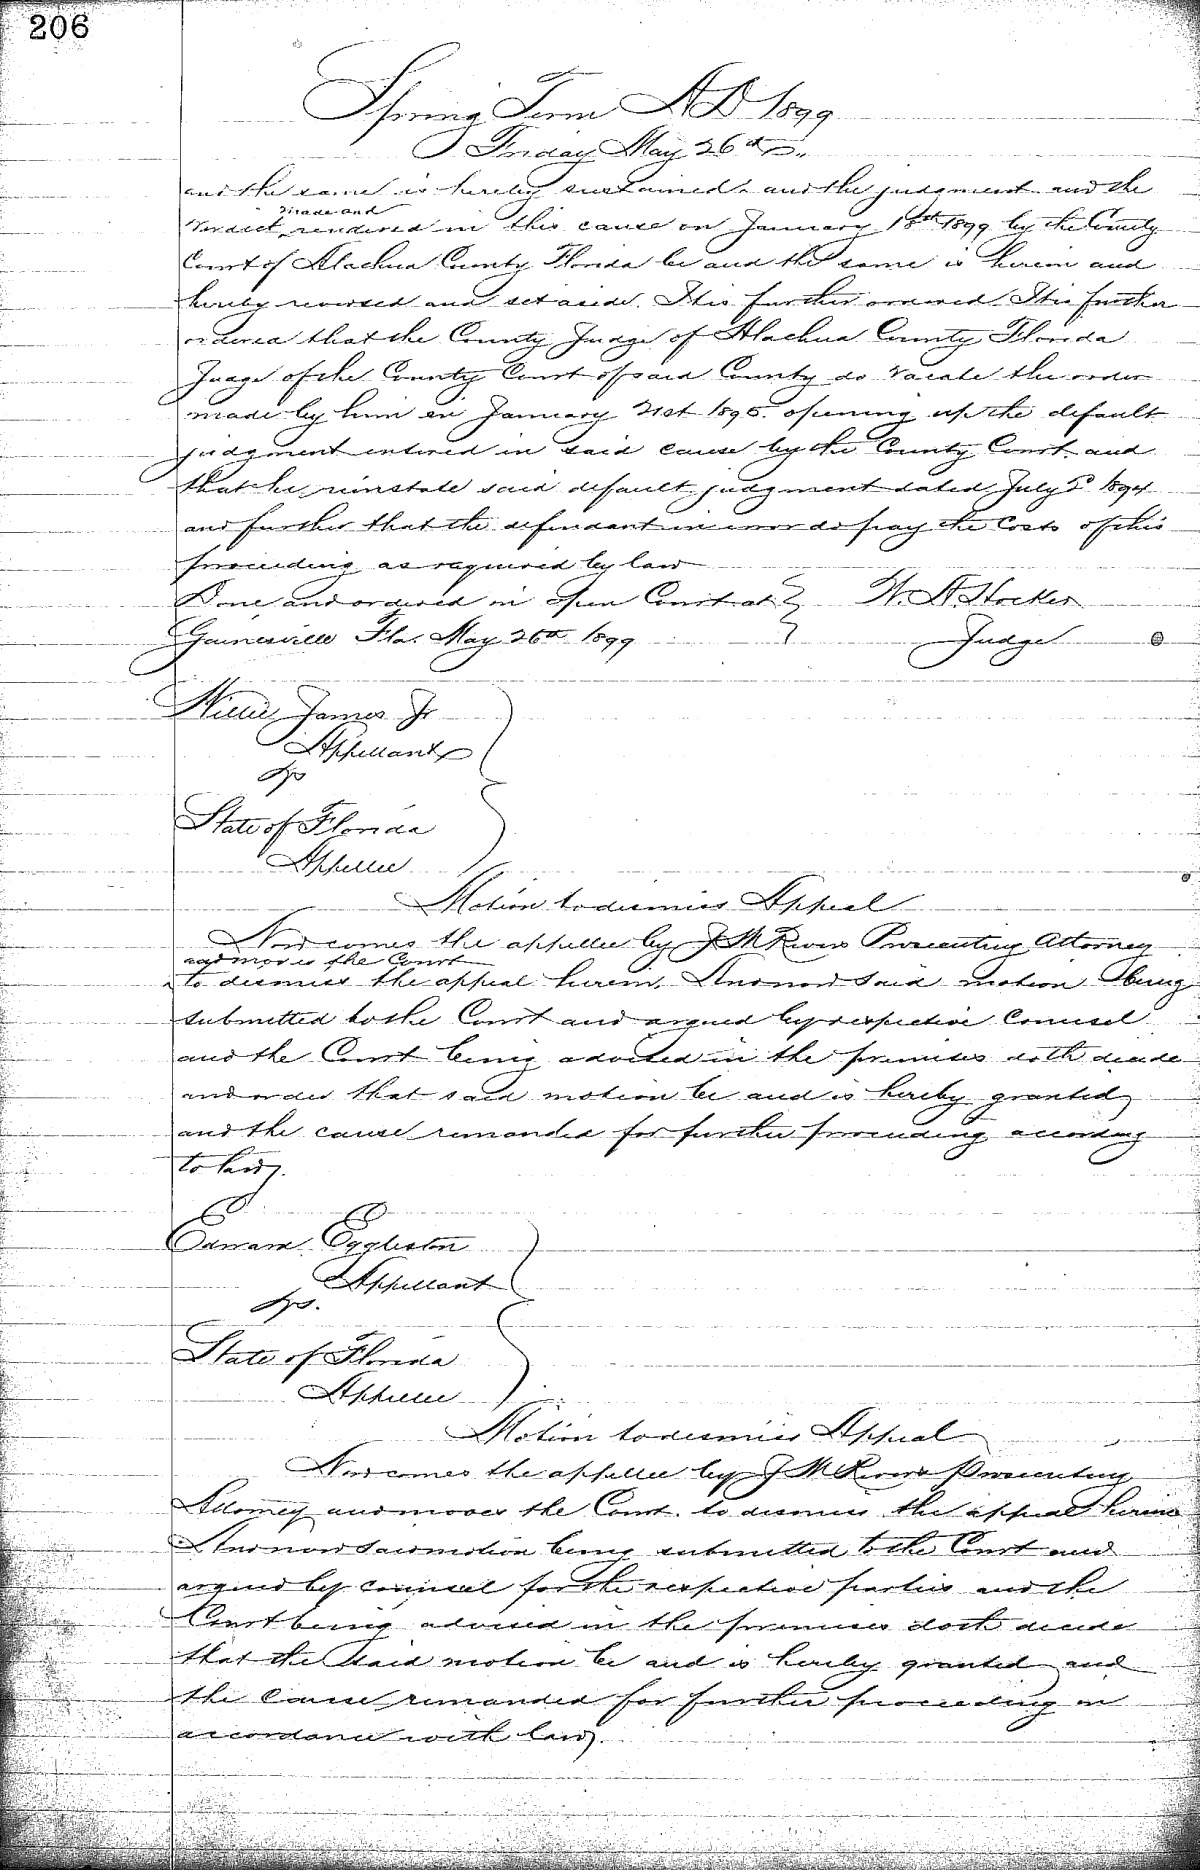 206
Spring Term A D 1899
Friday May 26th
and the same is hereby sustained and the judgment and the
made and
verdict rendered in this cause on January 18th 1899 by the County
Court of Alachua County Florida be and the same is herein and
hereby reversed and set aside. It is further ordered It is further
ordered that the County Judge of Alachua County Florida
Judge of the County Court of said County do vacate the order
made by him on January 21st 1895 opening up the default
judgment entered in said cause by the County Court and
that he reinstate said default judgment dated July 1894
and further that the defendant in error do pay the Costs of this
proceeding as required by law
Done and ordered in open Court at W. A. Hocker
Gainesville Fla. May 26th 1899 Judge
Willie James Jr
Appellant
vs
State of Florida
Appellee
Motion to dismiss Appeal
Now comes the appellee by J M Rivers Prosecuting Attorney
and moves the Court
to dismiss the appeal herein. And now said motion being
submitted to the Court and argued by respective Counsel
and the Court being advised in the premises doth decide
and order that said motion be and is hereby granted
and the cause remanded for further proceeding according
to law.
Edward Eggleston
Appellant
vs.
State of Florida
Appellee
Motion to dismiss Appeal
Now comes the appellee by J M Rivers Prosecuting
Attorney and moves the Court to dismiss the appeal herein
And now said motion being submitted to the Court and
argued by counsel for the respective parties and the
Court being advised in the premises doth decide
that the said motion be and is hereby granted and
the cause remanded for further proceeding in
accordance with law.